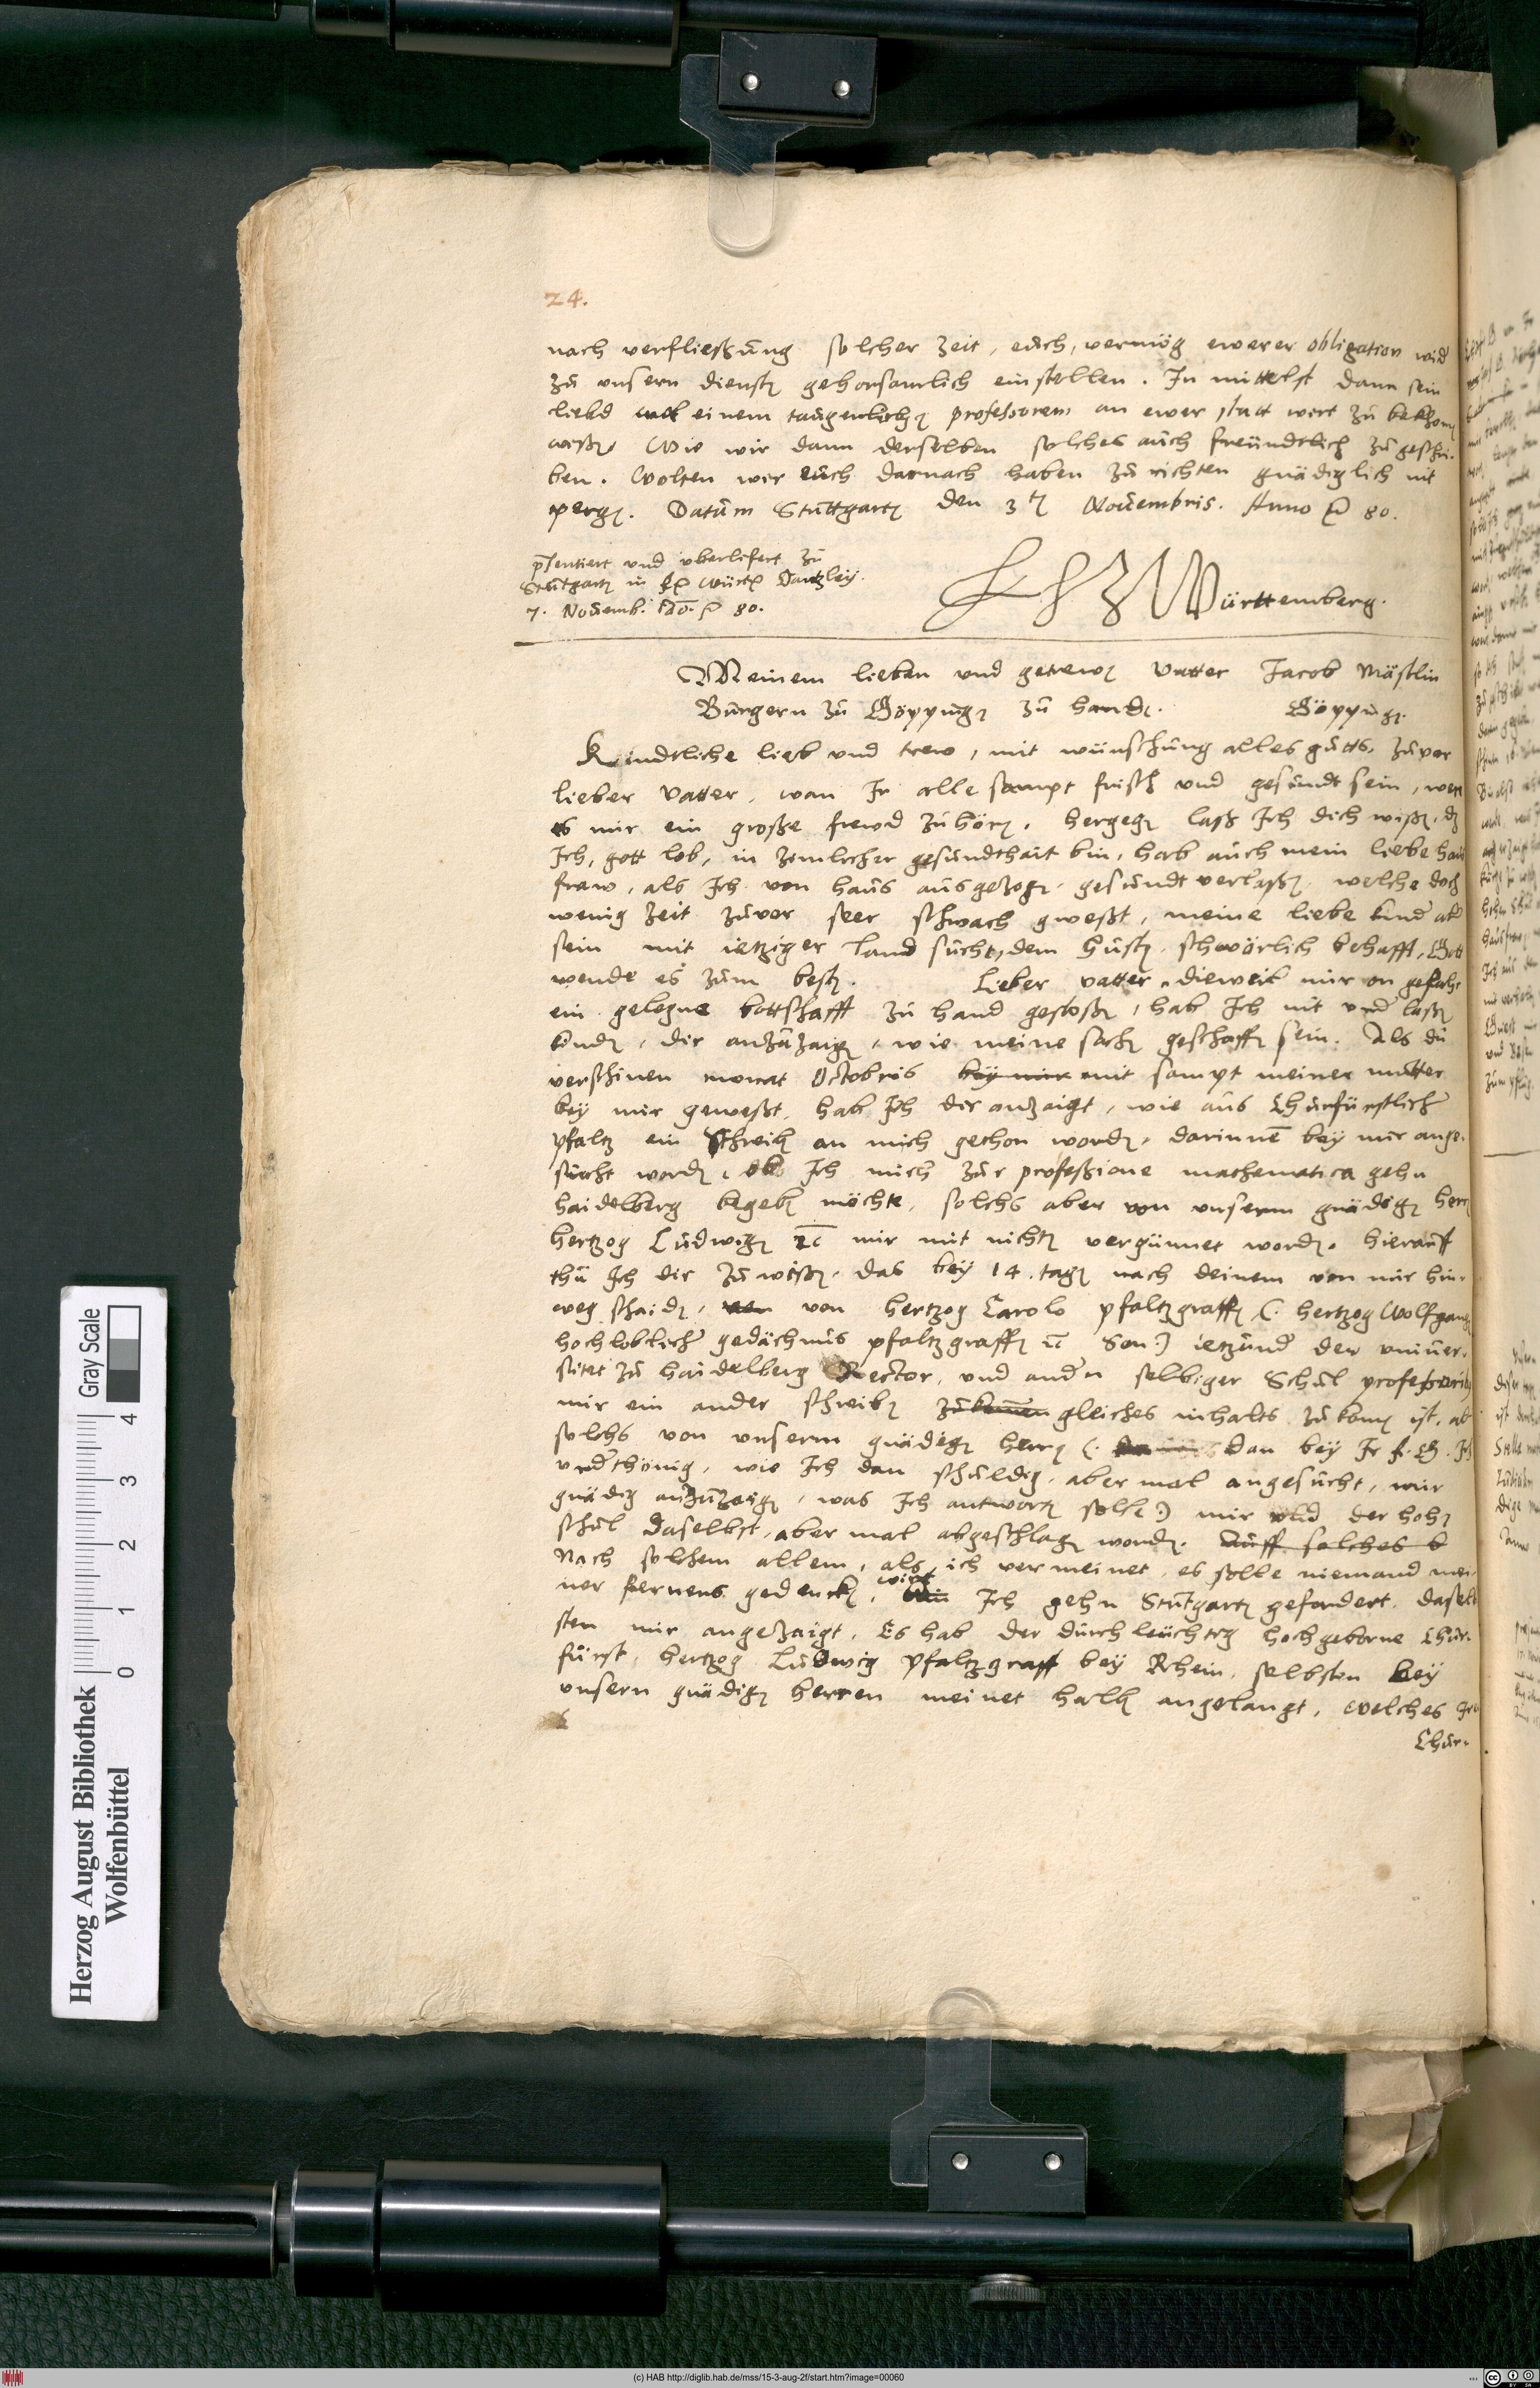 24.
nach verfließung solcher Zeit, euch, vermög ewerer obligation wider
zu unsern diensten gehorsamlich einstellen. In mittelst dann sein
liebd einem taugenlichen professorem an ewer statt wirt zu bekhomen
wißen. Wie wir dann derselben solches auch freundtlich zugeschri-
ben. Wolten wir euch darnach haben zu richten gnädiglich nit
pergen. Datum Stuttgarten den 3ten Novembris. Anno 80.
praesentiert und uberlifert zu
Stuttgarten in Würt. Cantzley.
7. Novemb. Ao. 80.
L H Z Württemberg.
Meinem lieben und getrewen Vatter Jacob Mästlin
Burgern zu Göppingen zu handen. Göppingen.
Kindtliche lieb und trew, mit wünschung alles guts, zuvor
lieber Vatter, wan Ir alle sampt frisch und gesundt sein, wer
es mir ein große frewd zuhören. hergegen laß Ich dich wißen, dz
Ich, gott lob, in zimlicher gesundthait bin, hab auch mein liebe haus
fraw, als Ich von haus ausgezogen gesundt verlaßen, welche doch
wenig zeit zuvor seer schwach gweßt, meine liebe kinder aber
sein mit ietziger land sucht, dem husten schwörlich behafft, Gott
wende es zum besten. Lieber vatter, dieweil mir on gefahr
ein gelegne bottschafft zu hand gestoßen, hab Ich nit underlaßen
kinden, dir anzuzaigen, wie meine sachen geschaffen sein. Als du
verschinen monat Octobris bey mir mit sampt meiner mutter
bey mir geweßt, hab Ich dir anzaigt, wie aus Churfürstlicher
pfaltz ein schreiben an mich gethon worden, darinnen bey mir ange-
sucht worden, ob Ich mich zur professione mathematica gehn
haidelberg begeben möchte, solchs aber von unserm gnädigen herren
hertzog Ludwigen etc mir mit nichten vergünnet worden. hierauff
thu Ich dir zuwißen, das bey 14. tagen nach deinem von mir hin-
weg schaiden, von von hertzog Carolo pfaltzgraffen (: hertzog Wolfgangs
hochloblicher gedächtnus pfaltzgraffen etc Son :) ietzunder der univer-
sitet zu haidelberg Rector, und andern selbiger Schul professoribus
mir ein ander schreiben zukommen gleiches inhalts zukomen ist, aber
solchs von unserm gnädigen herren (: dan bey Ir f. G. Ich
underthönig, wie Ich dan schuldig, aber mal angesucht, mir
gnädig anzuzeigen, was Ich antworten solle :) mir und der hohen
schul daselbst, aber mal abgeschlagen worden. Auff solches b
Nach solchem allem, als ich vermeinet, es solle niemand mei-
ner ferners gedencken, bin wirt Ich gehn Stutgarten gefordert. daselb
sten mir angezaigt, Es hab der durchleuchtig hochgeborne Chur-
fürst, hertzog Ludwig Pfaltzgraff bey Rhein, selbsten bey
unsern gnädigen herren meinet halben angelangt, welches Ire
Chur-
Herzog August Bibliothek
Wolfenbüttel
Gray Scale
0 1 2 3 4
(c) HAB http://diglib.hab.de/mss/15-3-aug-2f/start.htm?image=00060